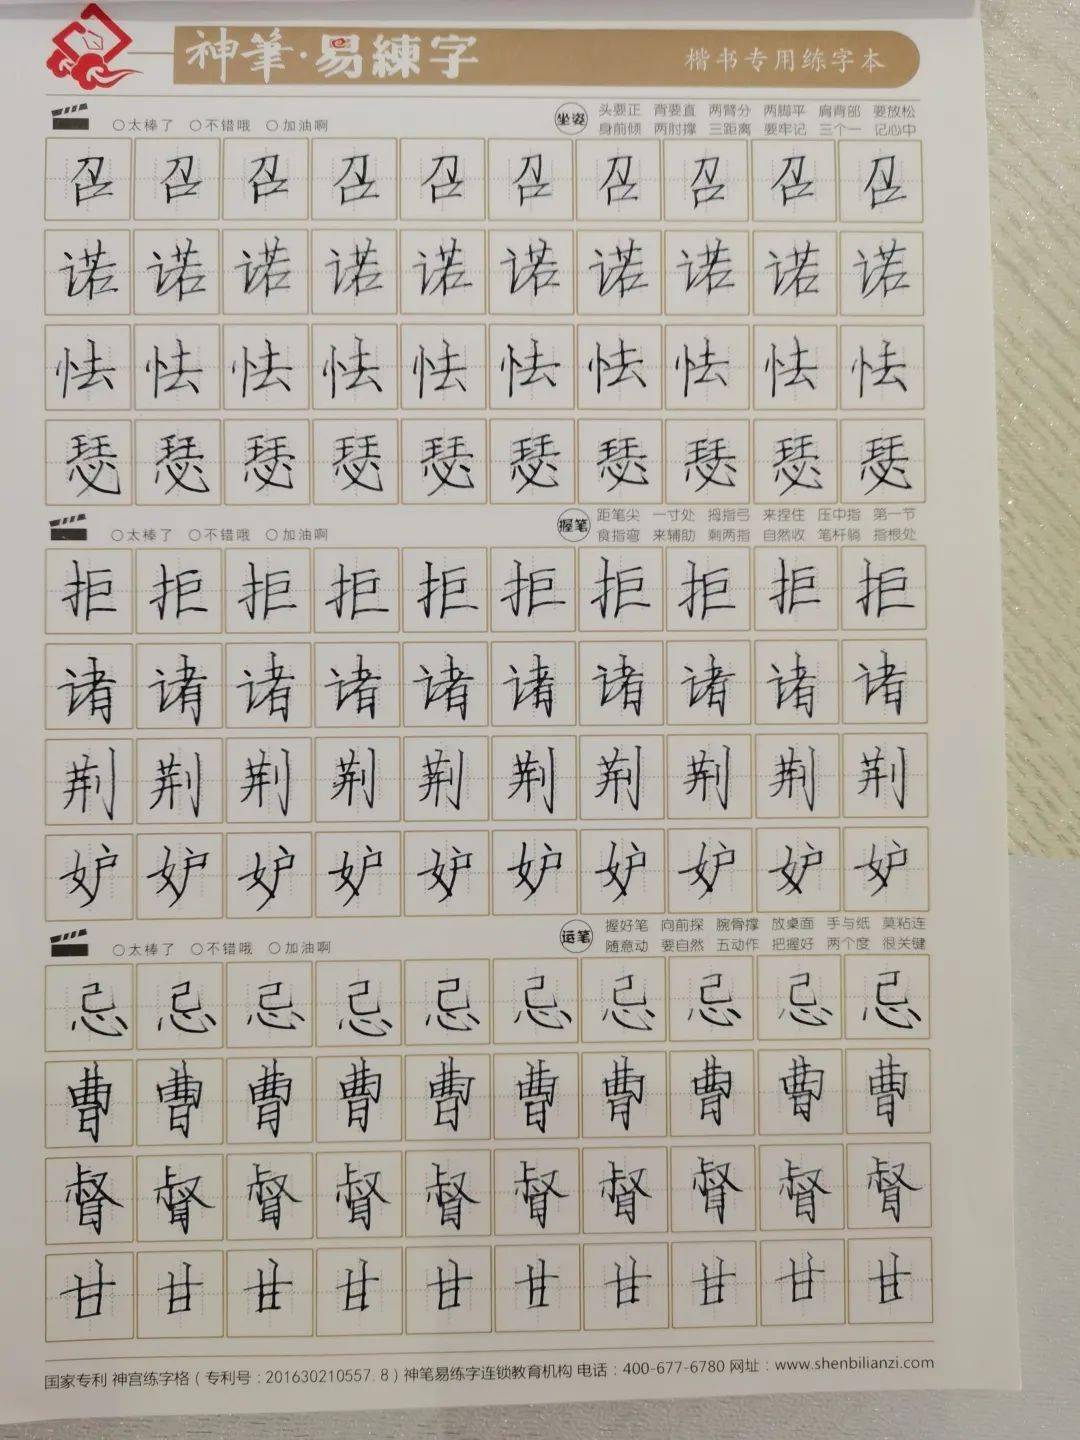 神筆·易練字 楷书专用练字本
○太棒了 ○不错哦 ○加油啊
坐姿 头要正 背要直 两臂分 两脚平 肩背部 要放松
身前倾 两肘撑 三距离 要牢记 三个一 记心中
召 召 召 召 召 召 召 召 召 召
诺 诺 诺 诺 诺 诺 诺 诺 诺 诺
怯 怯 怯 怯 怯 怯 怯 怯 怯 怯
瑟 瑟 瑟 瑟 瑟 瑟 瑟 瑟 瑟 瑟
○太棒了 ○不错哦 ○加油啊
握笔 距笔尖 一寸处 拇指弓 来捏住 压中指 第一节
食指弯 来辅助 剩两指 自然收 笔杆躺 指根处
拒 拒 拒 拒 拒 拒 拒 拒 拒 拒
诸 诸 诸 诸 诸 诸 诸 诸 诸 诸
荆 荆 荆 荆 荆 荆 荆 荆 荆 荆
妒 妒 妒 妒 妒 妒 妒 妒 妒 妒
○太棒了 ○不错哦 ○加油啊
运笔 握好笔 向前探 腕骨撑 放桌面 手与纸 莫粘连
随意动 要自然 五动作 把握好 两个度 很关键
忌 忌 忌 忌 忌 忌 忌 忌 忌 忌
曹 曹 曹 曹 曹 曹 曹 曹 曹 曹
督 督 督 督 督 督 督 督 督 督
甘 甘 甘 甘 甘 甘 甘 甘 甘 甘
国家专利 神宫练字格（专利号：201630210557.8）神笔易练字连锁教育机构 电话：400-677-6780 网址：www.shenbilianzi.com